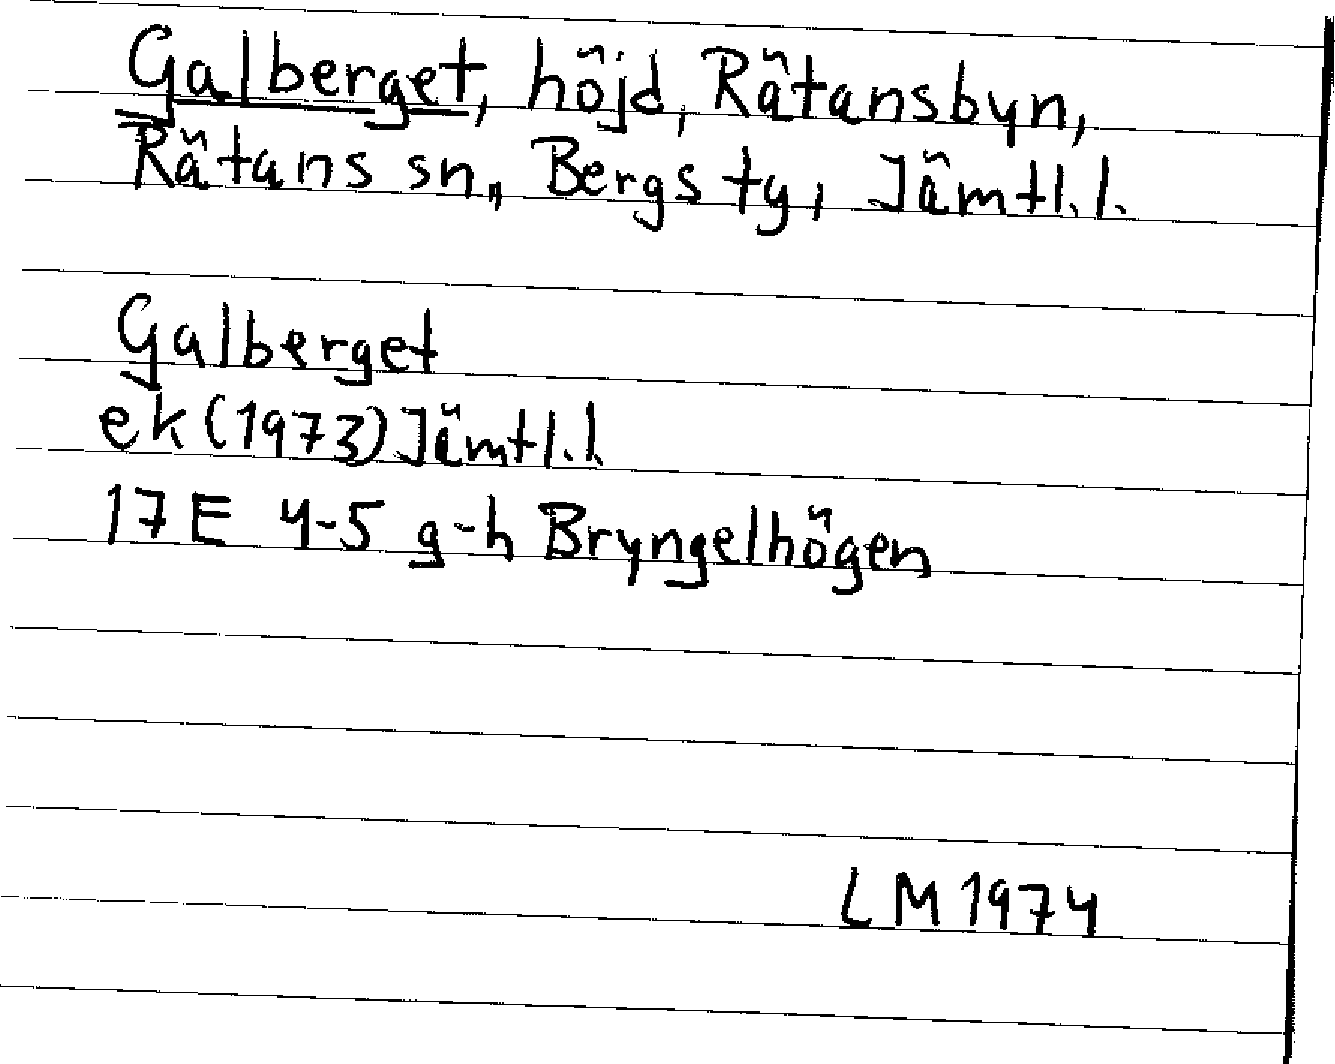 Galberget, höjd, Rätansbyn,
Rätans sn, Bergs ty, Jämtl.l.
Galberget
ek (1973) Jämtl.l
17E 4-5 g-h Bryngelhögen
LM 1974